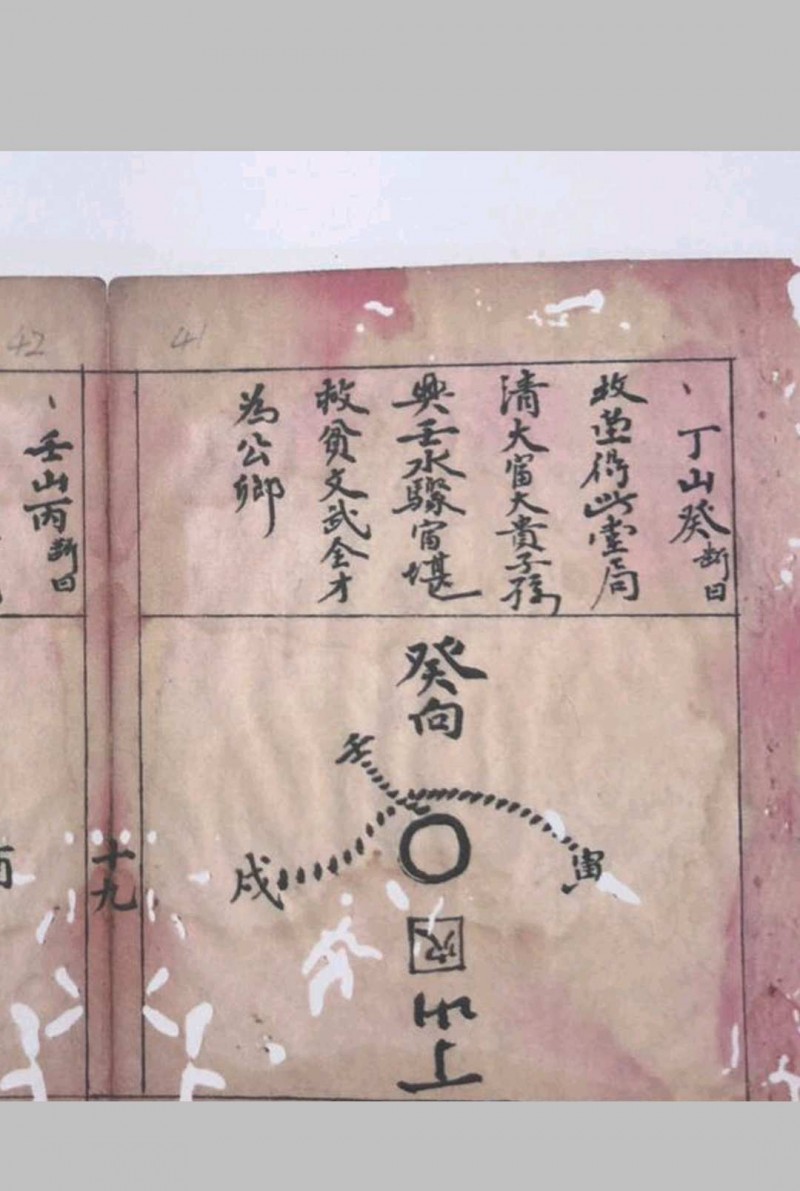 41
、丁山癸断曰
救莹得此堂局
清大富大貴子孫
興壬水驟富堪
救貧文武全才
為公卿
癸向
壬
寅
戌
穴
丁山
十九
42
、壬山丙断曰